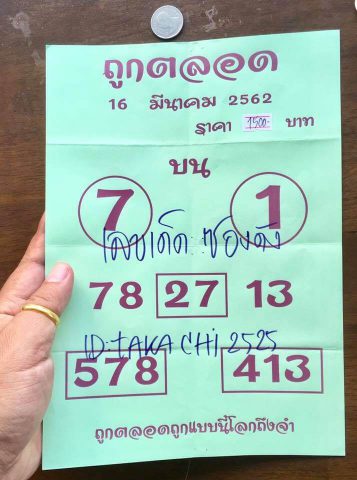 ถูกตลอด
16 มีนาคม 2562
ราคา 1500.- บาท
บน
7 1
เลขเด็ด ซองดัง
78 27 13
ID:TAKACHI2525
578 413
ถูกตลอดถูกแบบนี้โลกถึงจำ